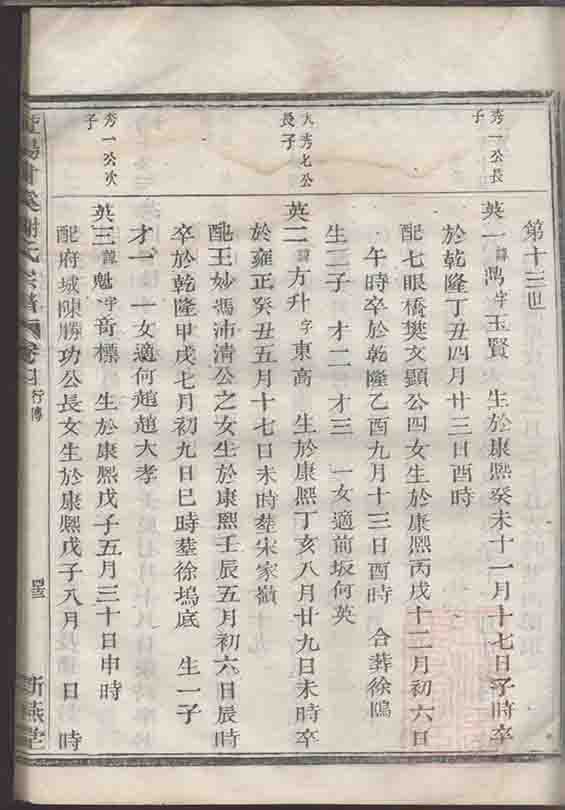 第十三世
秀一公長子
英一諱鳳字玉賢 生於康熙癸未十一月十七日子時卒
於乾隆丁丑四月廿三日酉時
配七眼橋樊文顯公四女生於康熙丙戌十二月初六日
午時卒於乾隆乙酉九月十三日酉時 合葬徐塢
生二子 才二 才三 一女適前坂何英
大秀七公長子
英二諱方升字東高 生於康熙丁亥八月廿九日未時卒
於雍正癸丑五月十七日未時塟宋家嶺
配王妙馮沛清公之女生於康熙壬辰五月初六日辰時
卒於乾隆甲戌七月初九日巳時塟徐塢底 生一子
才一 一女適何趙趙大孝
秀一公次子
英三諱魁字奇標 生於康熙戊子五月三十日申時
配府城陳勝功公長女生於康熙戊子八月 日 時
謝氏宗譜 行傳